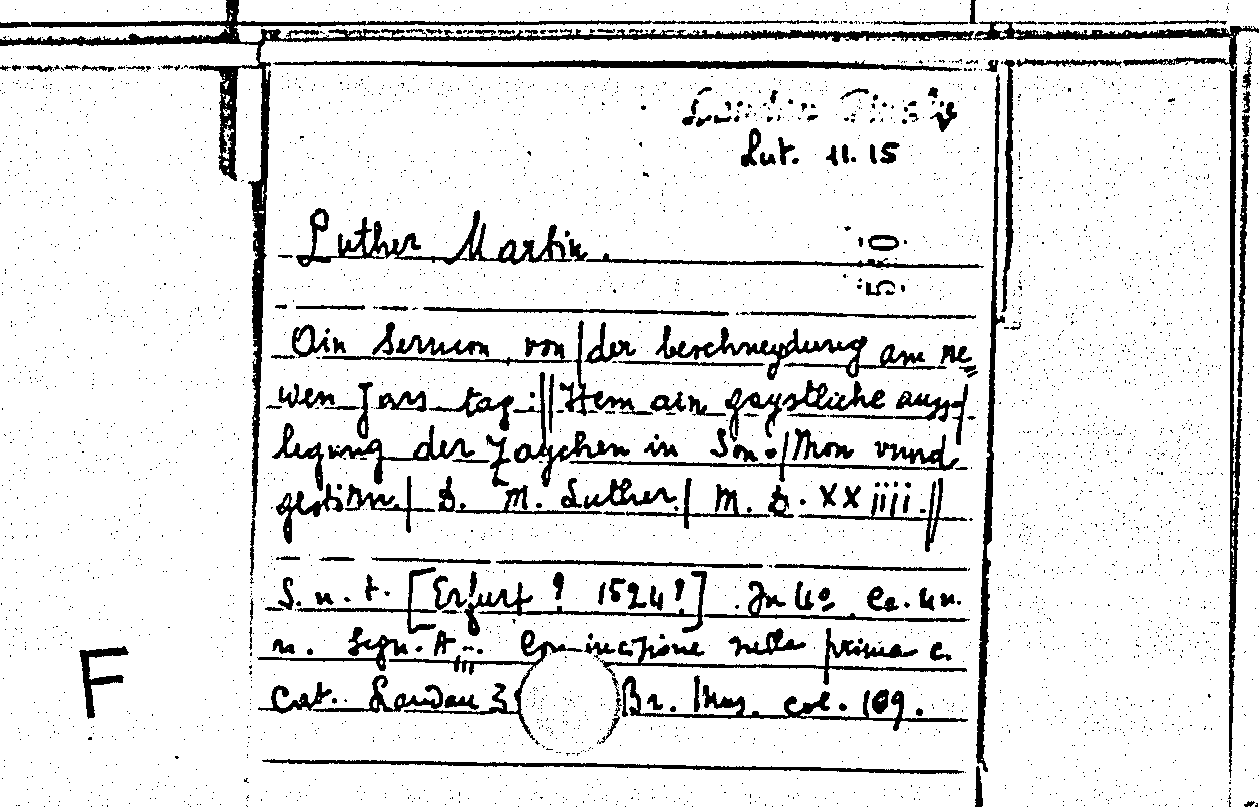 Landau Finaly
Lut. 11.15
Luther Martin.
Ain Sermon von| der beschneydung am ne=
wen Jars tag:||Item ain gaystliche auss-|
legung der Zaychen in Son·/Mon vnnd
gestirn.| D. M. Luther.| M. D. XXiiii.||
S. n. t. [Erfurt ? 1524?]. In 4º Cc. 4 n.
n. Segn. A iii. Con incisione nella prima c.
Cat. Landau Br. Mus. col. 109.
F